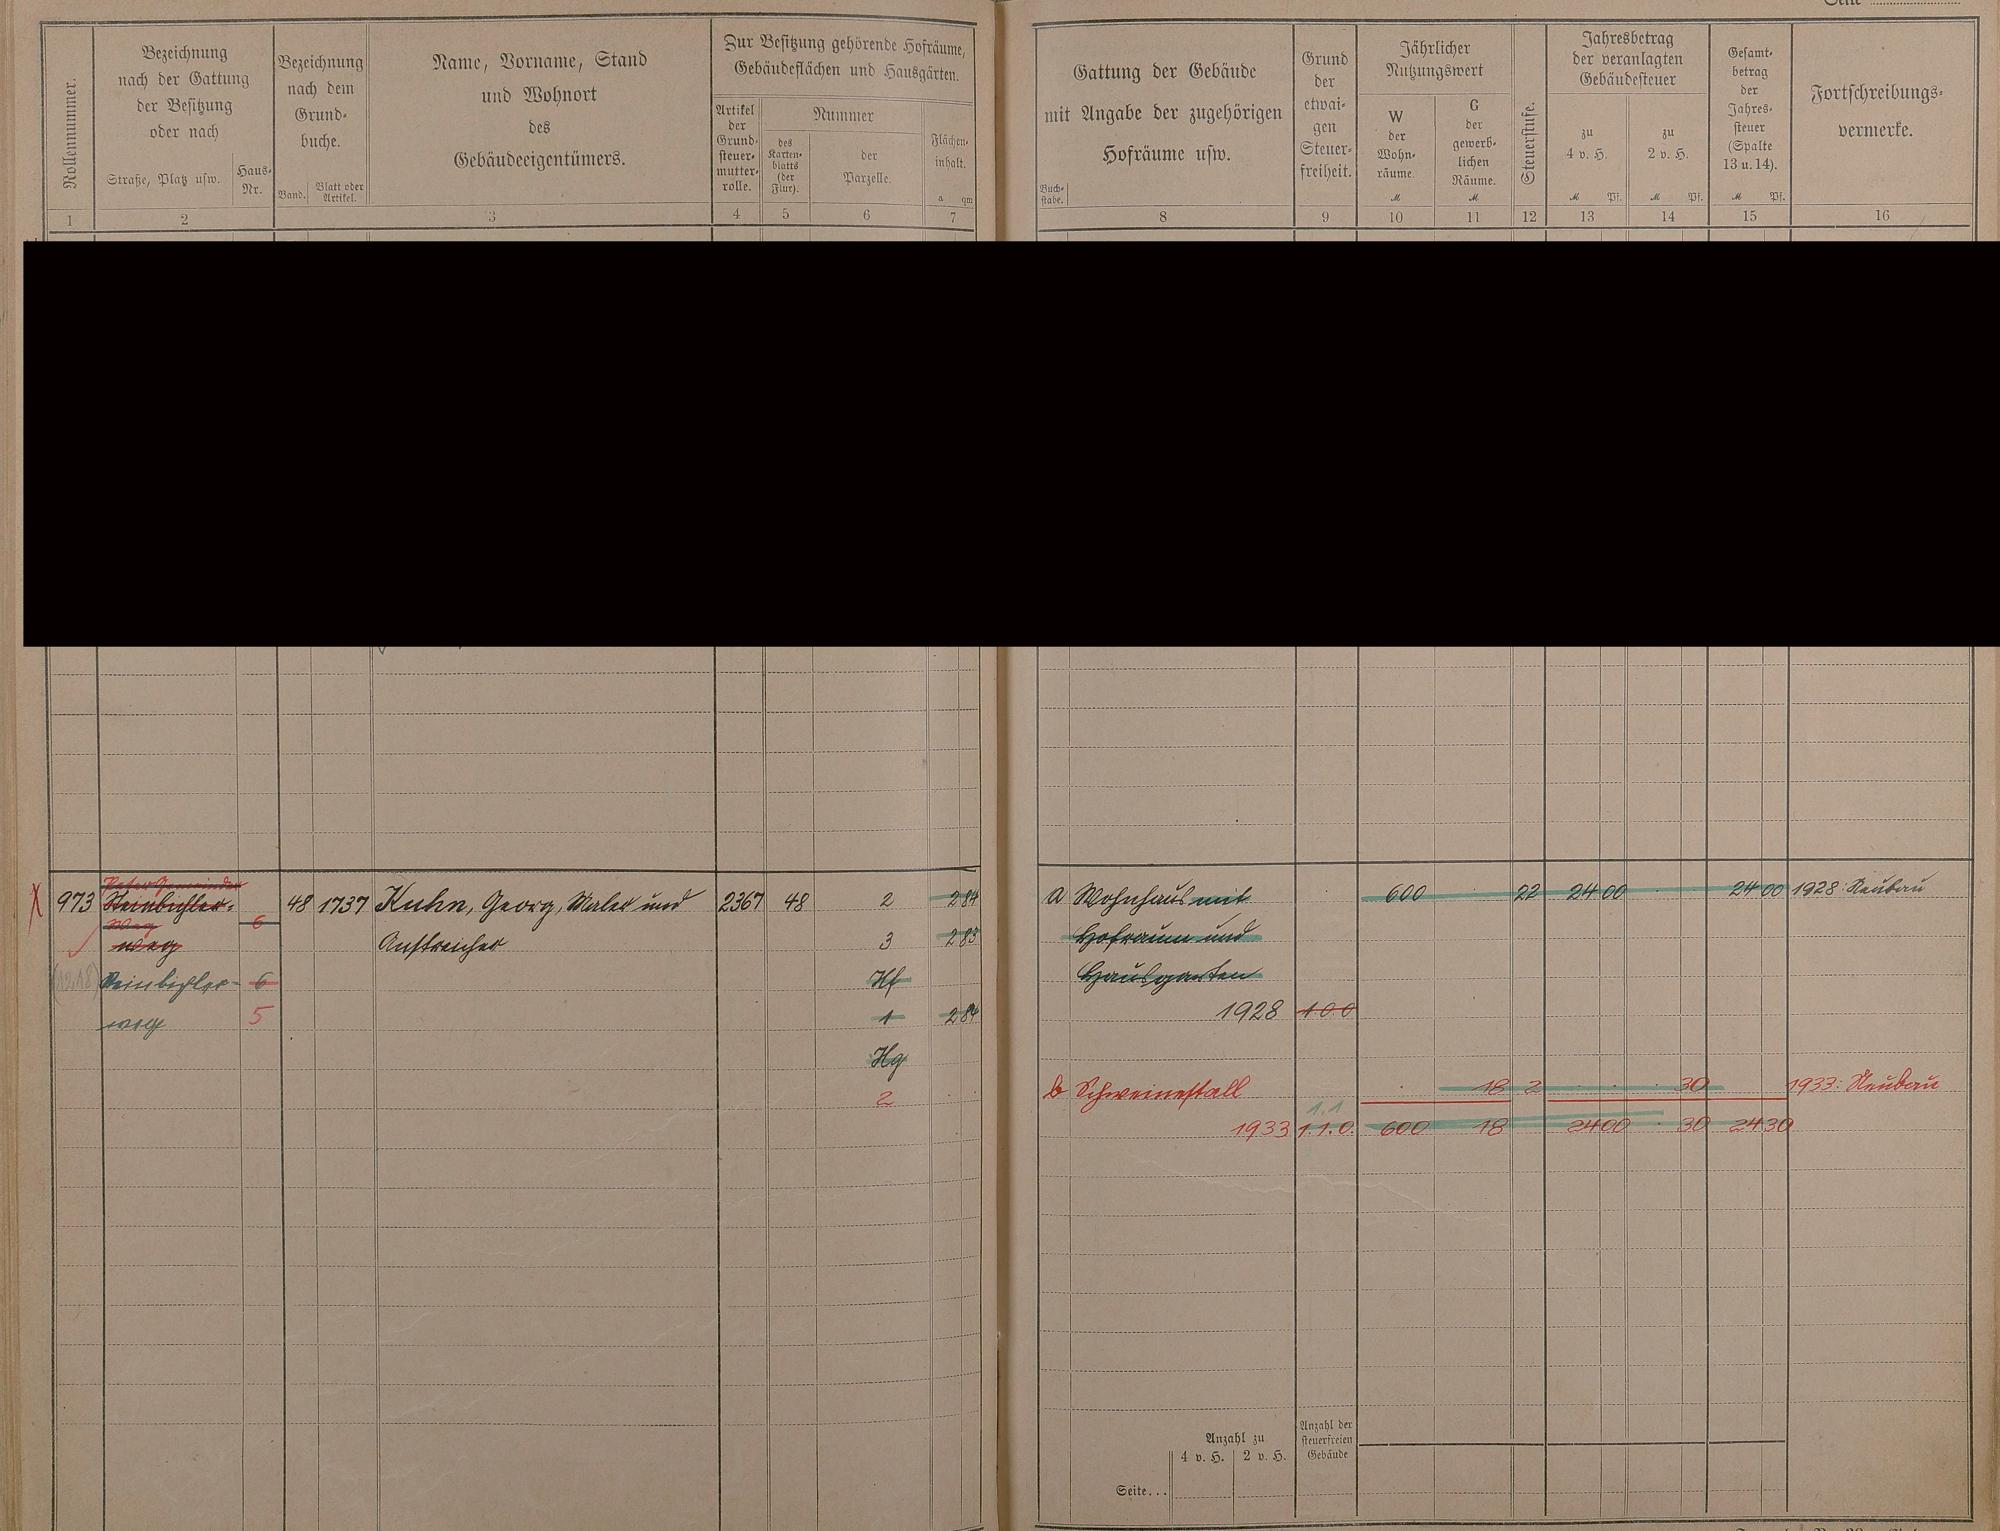 Rollennummer.
Bezeichnung
nach der Gattung
der Besitzung
oder nach
Straße, Platz usw.
Haus-
Nr.
Bezeichnung
nach dem
Grund-
buche.
Band.
Blatt oder
Artikel.
Name, Vorname, Stand
und Wohnort
des
Gebäudeeigentümers.
Zur Besitzung gehörende Hofräume,
Gebäudeflächen und Hausgärten.
Artikel
der
Grund-
steuer-
mutter-
rolle.
Nummer
des
Karten-
blatts
(der
Flur).
der
Parzelle.
Flächen-
inhalt.
a qm
Gattung der Gebäude
mit Angabe der zugehörigen
Hofräume usw.
Buch-
stabe.
Grund
der
etwai-
gen
Steuer-
freiheit.
Jährlicher
Nutzungswert
W
der
Wohn-
räume.
M
G
der
gewerb-
lichen
Räume.
M
Steuerstufe.
Jahresbetrag
der veranlagten
Gebäudesteuer
zu
4 v. H.
M Pf.
zu
2 v. H.
M Pf.
Gesamt-
betrag
der
Jahres-
steuer
(Spalte
13 u. 14).
M Pf.
Fortschreibungs-
vermerke.
1 2 3 4 5 6 7 8 9 10 11 12 13 14 15 16
973 Steinbichler- 6 48 1737 Kuhn, Georg, Maler und 2367 48 2 2 84 a Wohnhaus mit 600 22 24 00 24 00 1928: Neubau
Weg
weg Anstreicher 3 2 83 Hofraum und
(1218) 6 Hf Hausgarten
weg 5 1 2 84 1928 1.0.0
Hg
2 b Schweinestall 18 2 30 1933: Neubau
1.1
1933 1.1.0. 600 18 24 00 30 24 30
Anzahl zu
4 v. H. 2 v. H.
Anzahl der
steuerfreien
Gebäude
Seite...